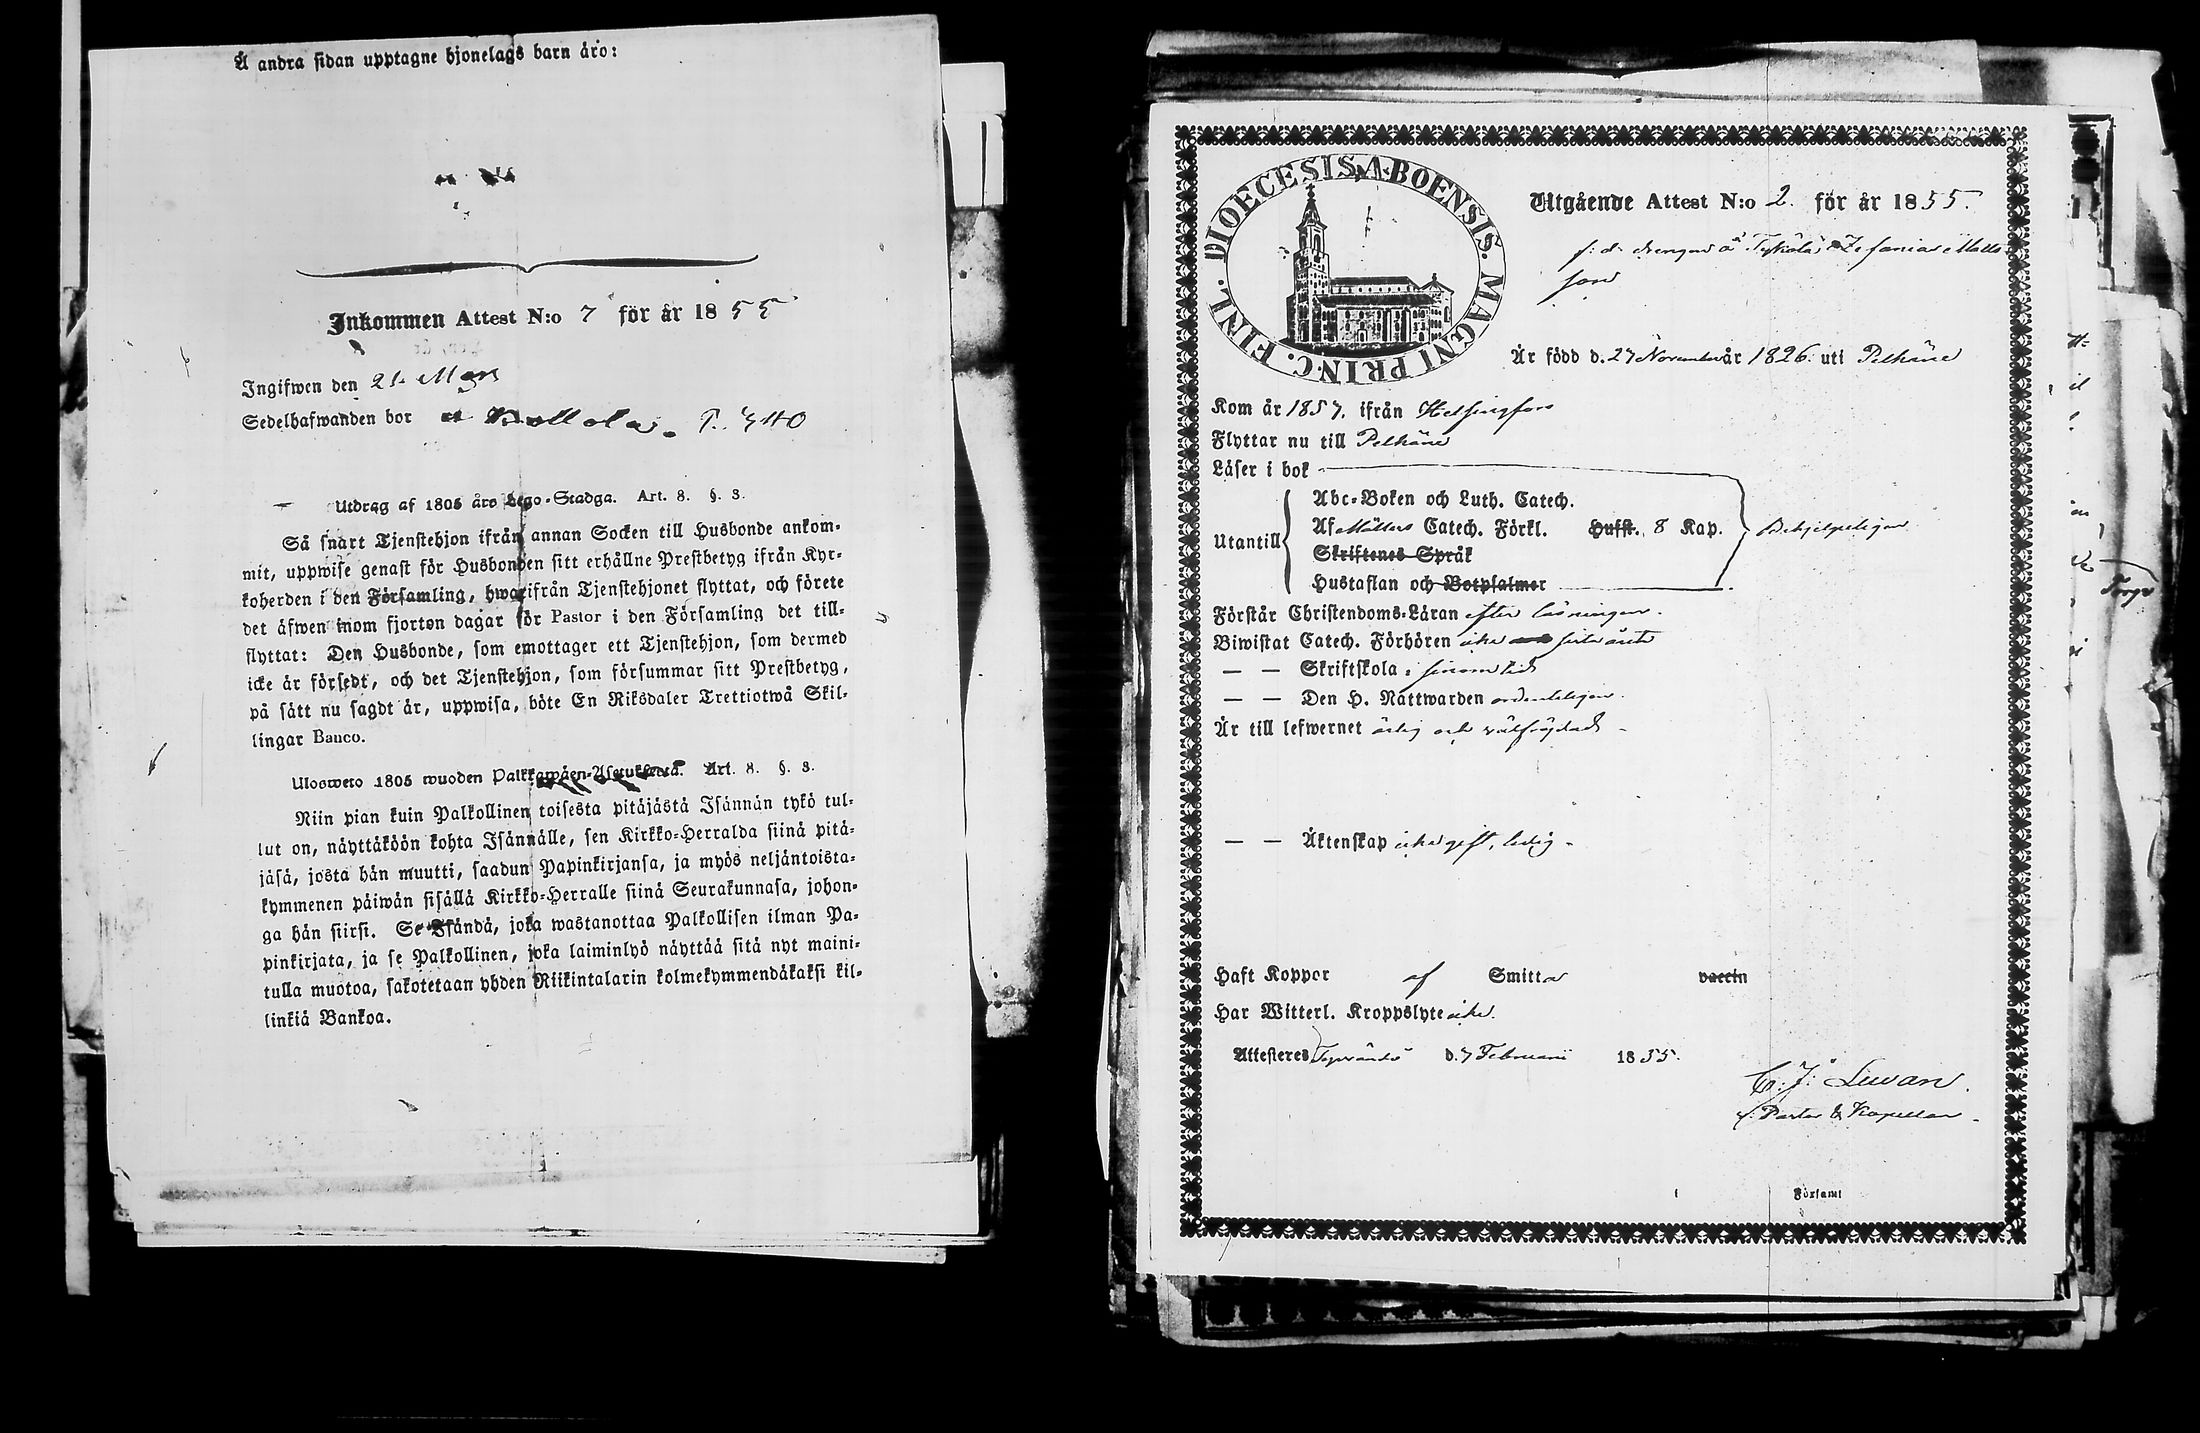 Å andra sidan upptagne hjonelags barn äro:
Inkommen Attest N:o 7 för år 1855
Ingifwen den 21 Mars
Sedelhafwanden bor
Utdrag af 1805 års Lego-Stadga. Art. 8. §. 3.
Så snart Tjenstehjon ifrån annan Socken till Husbonde ankom-
mit, uppwise genast för Husbonden sitt erhållne Prestbetyg ifrån Kyr-
koherden i den Församling, hwarifrån Tjenstehjonet flyttat, och förete
det äfwen inom fjorton dagar för Pastor i den Församling det till-
flyttat: Den Husbonde, som emottager ett Tjenstehjon, som dermed
icke är försedt, och det Tjenstehjon, som försummar sitt Prestbetyg,
på sätt nu sagdt är, uppwisa, böte En Riksdaler Trettiotwå Skil-
lingar Banco.
Ulosweto 1805 wuoden Palkkawäen-Asetuksesta. Art. 8. §. 3.
Niin pian kuin Palkollinen toisesta pitäjästä Isännän tykö tul-
lut on, näyttäköön kohta Isännälle, sen Kirkko-Herralda siinä pitä-
jäsä, josta hän muutti, saadun Papinkirjansa, ja myös neljäntoista-
kymmenen päiwän sisällä Kirkko-Herralle siinä Seurakunnasa, johon-
ga hän siirsi. Se Isändä, joka wastanottaa Palkollisen ilman Pa-
pinkirjata, ja se Palkollinen, joka laiminlyö näyttää sitä nyt maini-
tulla muotoa, sakotetaan yhden Riikintalarin kolmekymmendäkaksi kil-
linkiä Bankoa.
DIOECESIS ABOENSIS. MAGNI PRINC. FINL.
Utgående Attest N:o 2. för år 1855.
f: d. drengen å Zefanias Matts
son
Är född d. 27 November år 1826 uti Pelkäne
Kom år 185 ifrån Helsingfors
Flyttar nu till Pelkäne
Läser i bok
Utantill
Abc-Boken och Luth. Catech.
Af Möllers Catech. Förkl. Hufst. 8 Kap.
Skriftenes Språk
Hustaflan och Botpsalmer
Behjelpeligen
Förstår Christendoms-Läran efter läsningen.
Biwistat Catech. Förhören
— — Skriftskola i sinom tid
— — Den H. Nattwarden ordentligen.
Är till lefwernet ärlig och välfrägdad
— — Äktenskap icke gift, ledig.
Haft Koppor af Smitta vaccin
Har Witterl. Kroppslyte icke.
Attesteres Tyrvändö d. 7 Februarii 1855.
C: J: Lewan.
v: Pastor & Kapellan
i Församl